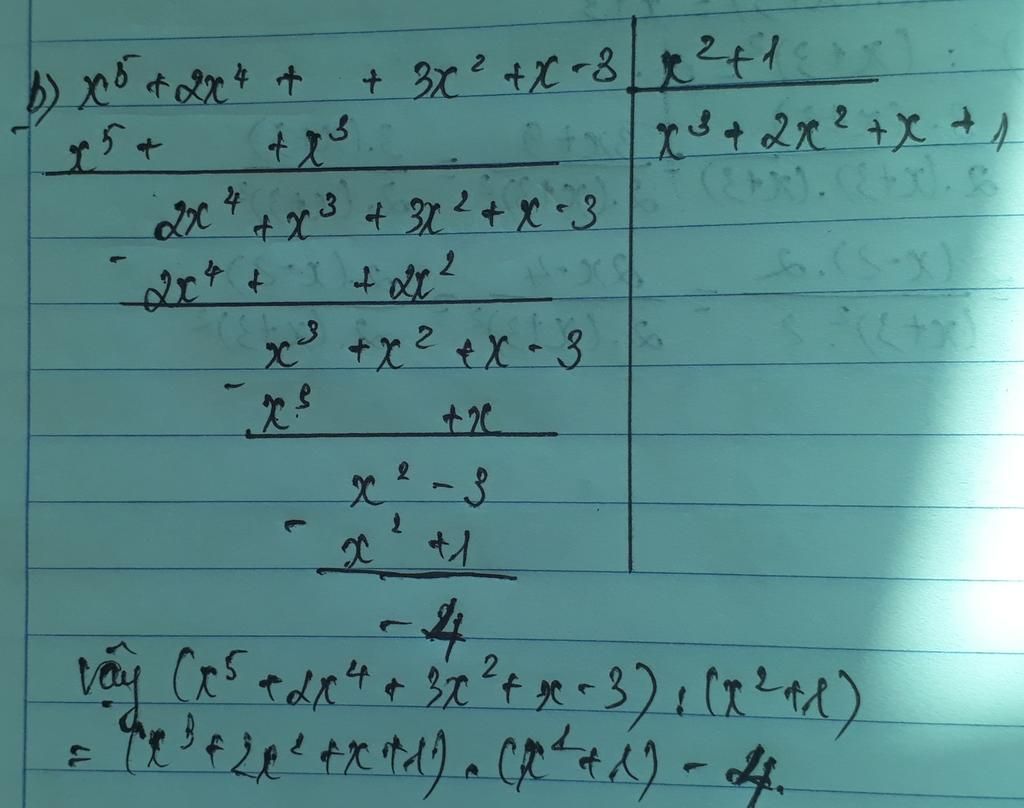 b) x⁵ + 2x⁴ + + 3x² + x - 3 | x² + 1
- x⁵ + + x³ | x³ + 2x² + x + 1
2x⁴ + x³ + 3x² + x - 3
- 2x⁴ + + 2x²
x³ + x² + x - 3
- x³ + x
x² - 3
- x² + 1
- 4
Vậy (x⁵ + 2x⁴ + 3x² + x - 3) : (x² + 1)
= (x³ + 2x² + x + 1) . (x² + 1) - 4.